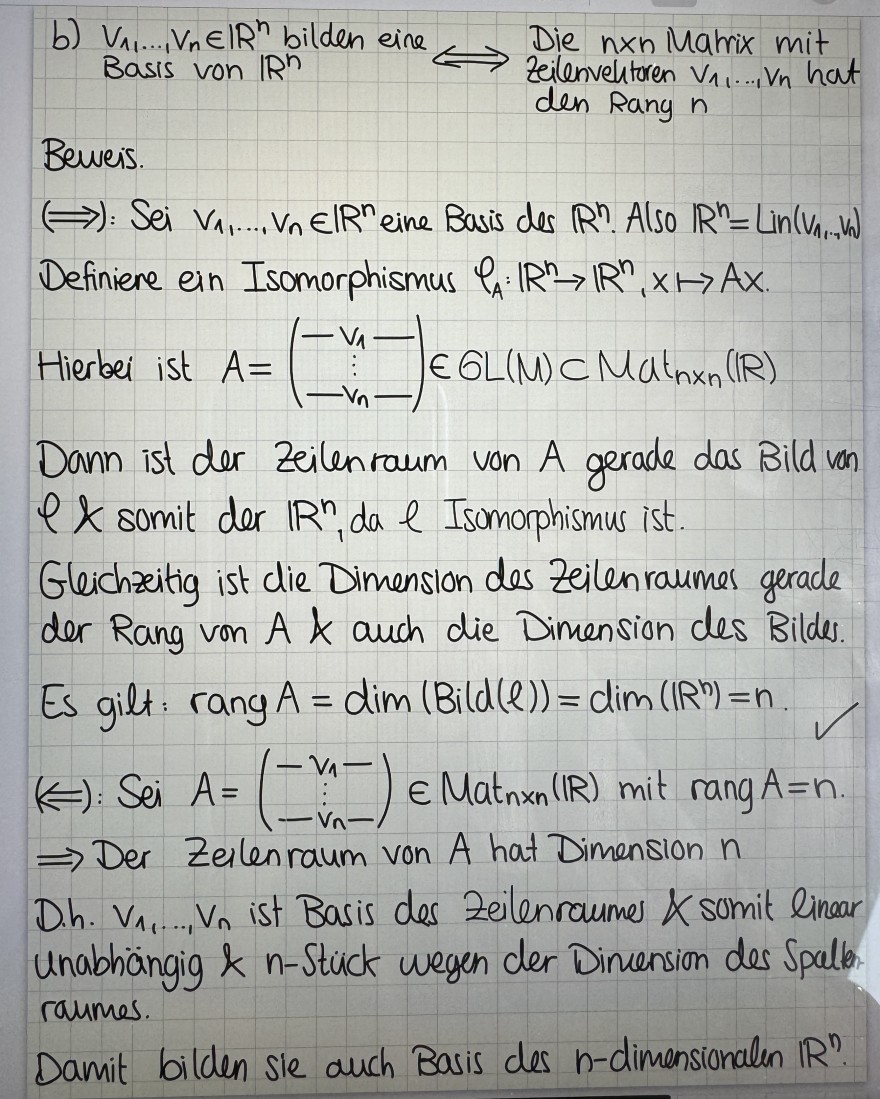 b) v₁,...,vₙ ∈ ℝⁿ bilden eine ⟺ Die n×n Matrix mit
Basis von ℝⁿ Zeilenvektoren v₁,...,vₙ hat
den Rang n
Beweis.
(⟹): Sei v₁,...,vₙ ∈ ℝⁿ eine Basis des ℝⁿ. Also ℝⁿ = Lin(v₁,..,vₙ)
Definiere ein Isomorphismus φ_A: ℝⁿ → ℝⁿ, x ↦ Ax.
Hierbei ist A = (— v₁ — ⋮ — vₙ —) ∈ GL(M) ⊂ Matₙₓₙ(ℝ)
Dann ist der Zeilenraum von A gerade das Bild von
φ & somit der ℝⁿ, da φ Isomorphismus ist.
Gleichzeitig ist die Dimension des Zeilenraumes gerade
der Rang von A & auch die Dimension des Bildes.
Es gilt: rang A = dim (Bild(φ)) = dim (ℝⁿ) = n. ✓
(⟸): Sei A = (— v₁ — ⋮ — vₙ —) ∈ Matₙₓₙ(ℝ) mit rang A = n.
⟹ Der Zeilenraum von A hat Dimension n
D.h. v₁,...,vₙ ist Basis des Zeilenraumes & somit linear
unabhängig & n-Stück wegen der Dimension des Spalten-
raumes.
Damit bilden sie auch Basis des n-dimensionalen ℝⁿ.